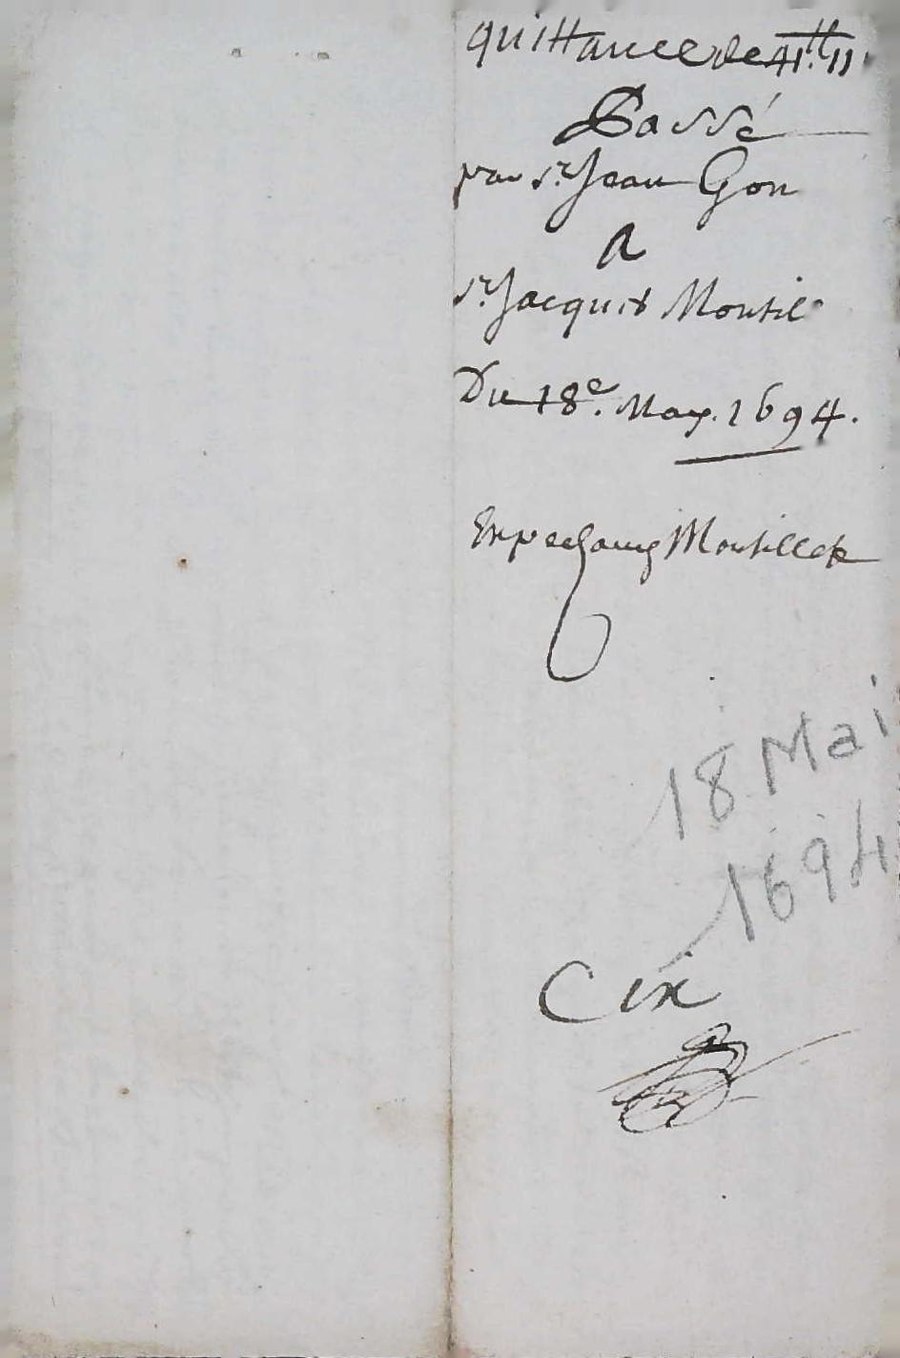 quittance de 41.tt 11
Passé
par sr. Jean Gon
A
sr. Jacques Montil
Du 18e. May. 1694.
Montillet
18 Mai
1694
Cix